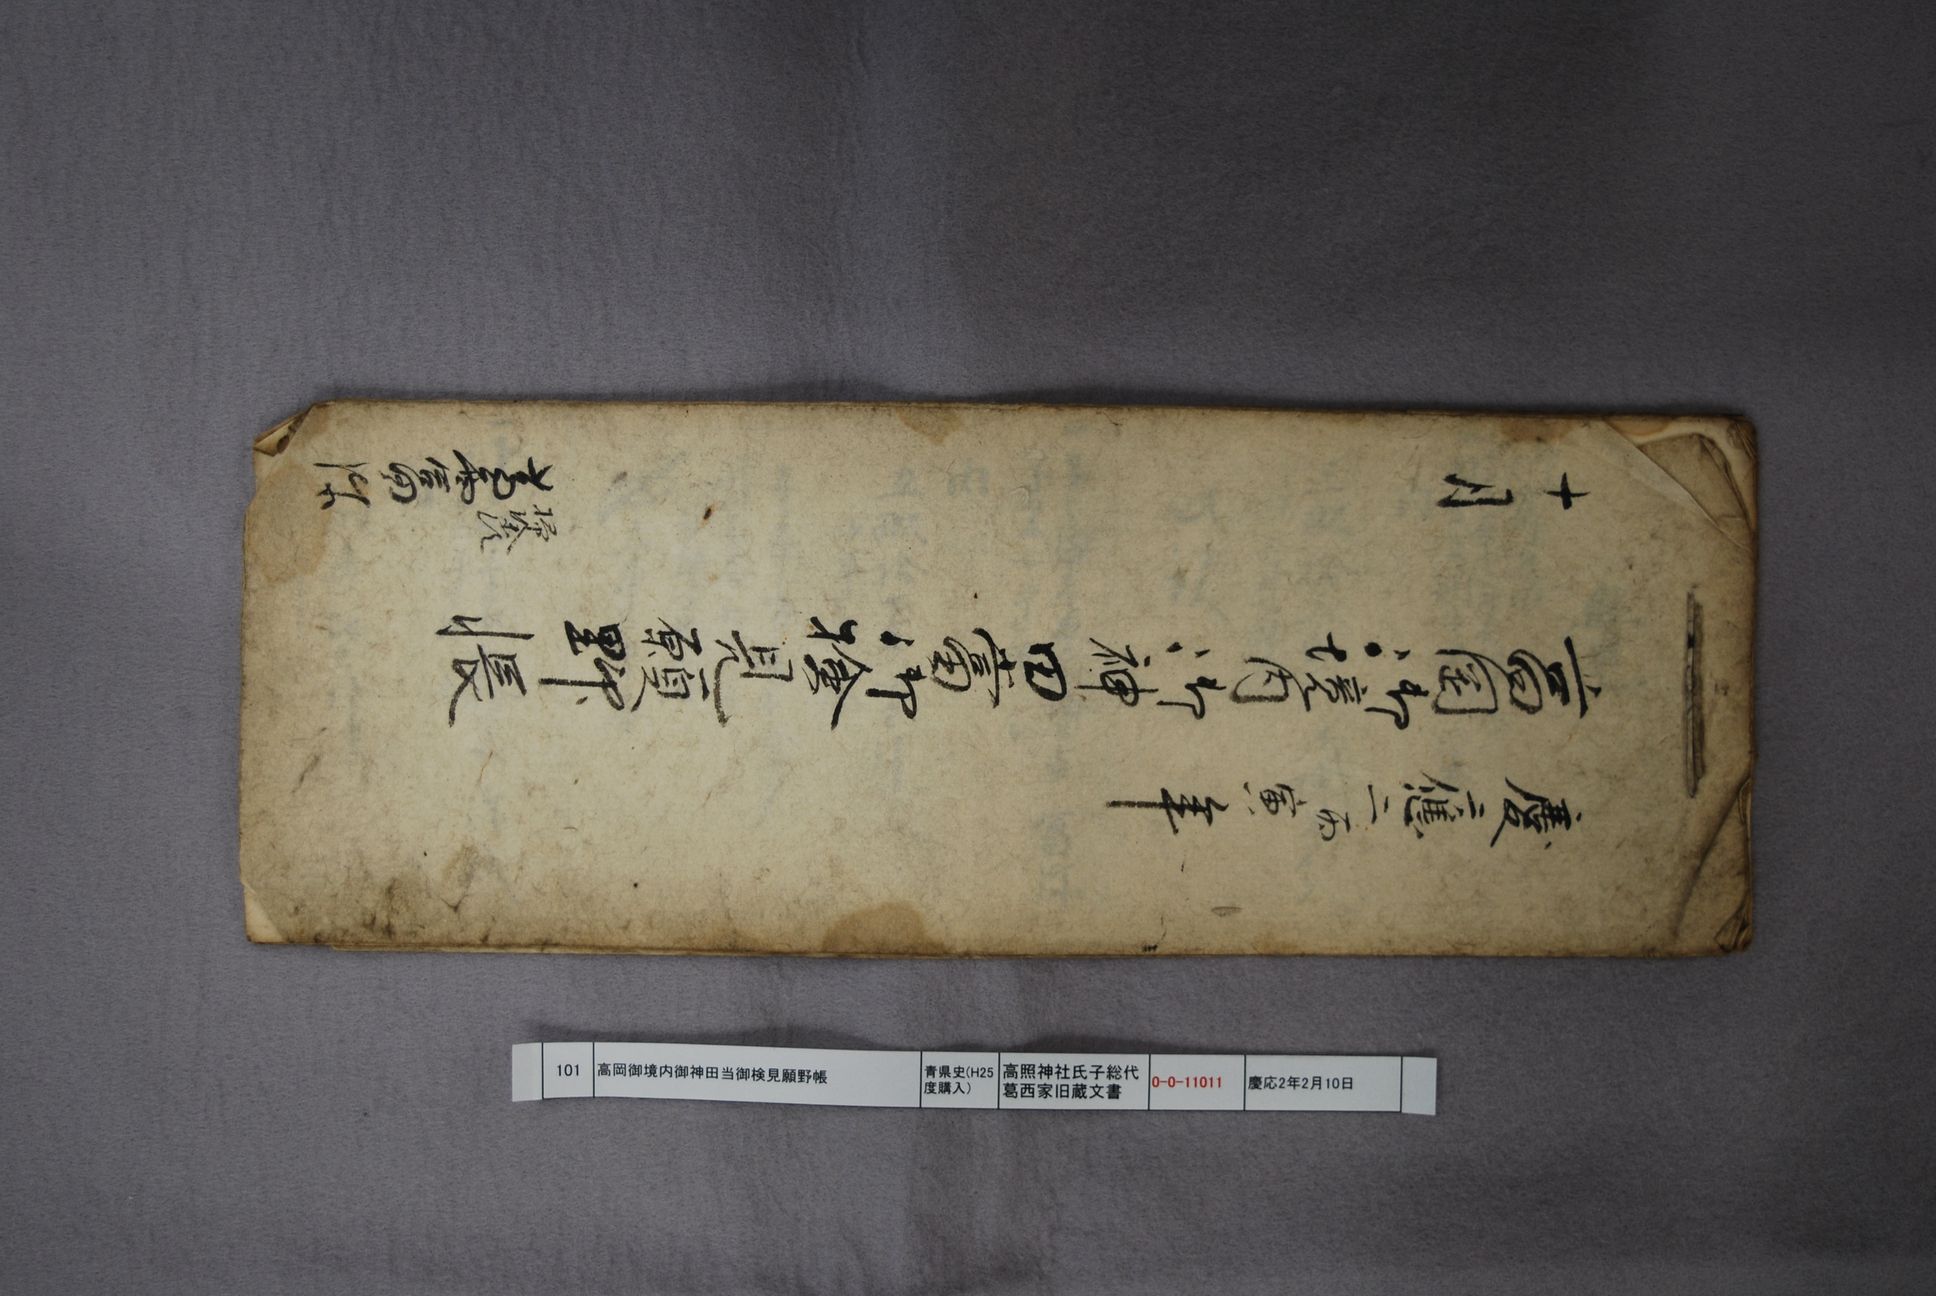 慶應二丙寅年
高岡御境内御神田當御檢見願野帳
十月
101
高岡御境内御神田当御検見願野帳
青県史(H25
度購入)
高照神社氏子総代
葛西家旧蔵文書
0-0-11011
慶応2年2月10日